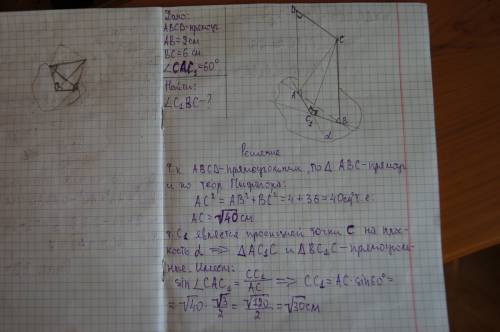 Дано:
ABCD-прямоуг.
AB=2см
BC=6 см
∠CAC₁=60°
Найти:
∠C₁BC-?
D
C
A
C₁
B
α
Решение
т.к. ABCD-прямоугольник, то Δ ABC-прямоуг
и по теор. Пифагора:
AC²=AB²+BC²=4+36=40см², т.е.
AC=√40 см
т.C₁ является проекцией точки C на плос-
кость α ⟹ ΔAC₁C и ΔBC₁C-прямоуголь-
ные. Имеем:
sin∠CAC₁ = CC₁/AC ⟹ CC₁=AC·sin60°=
=√40·√3/2=√120/2=√30см